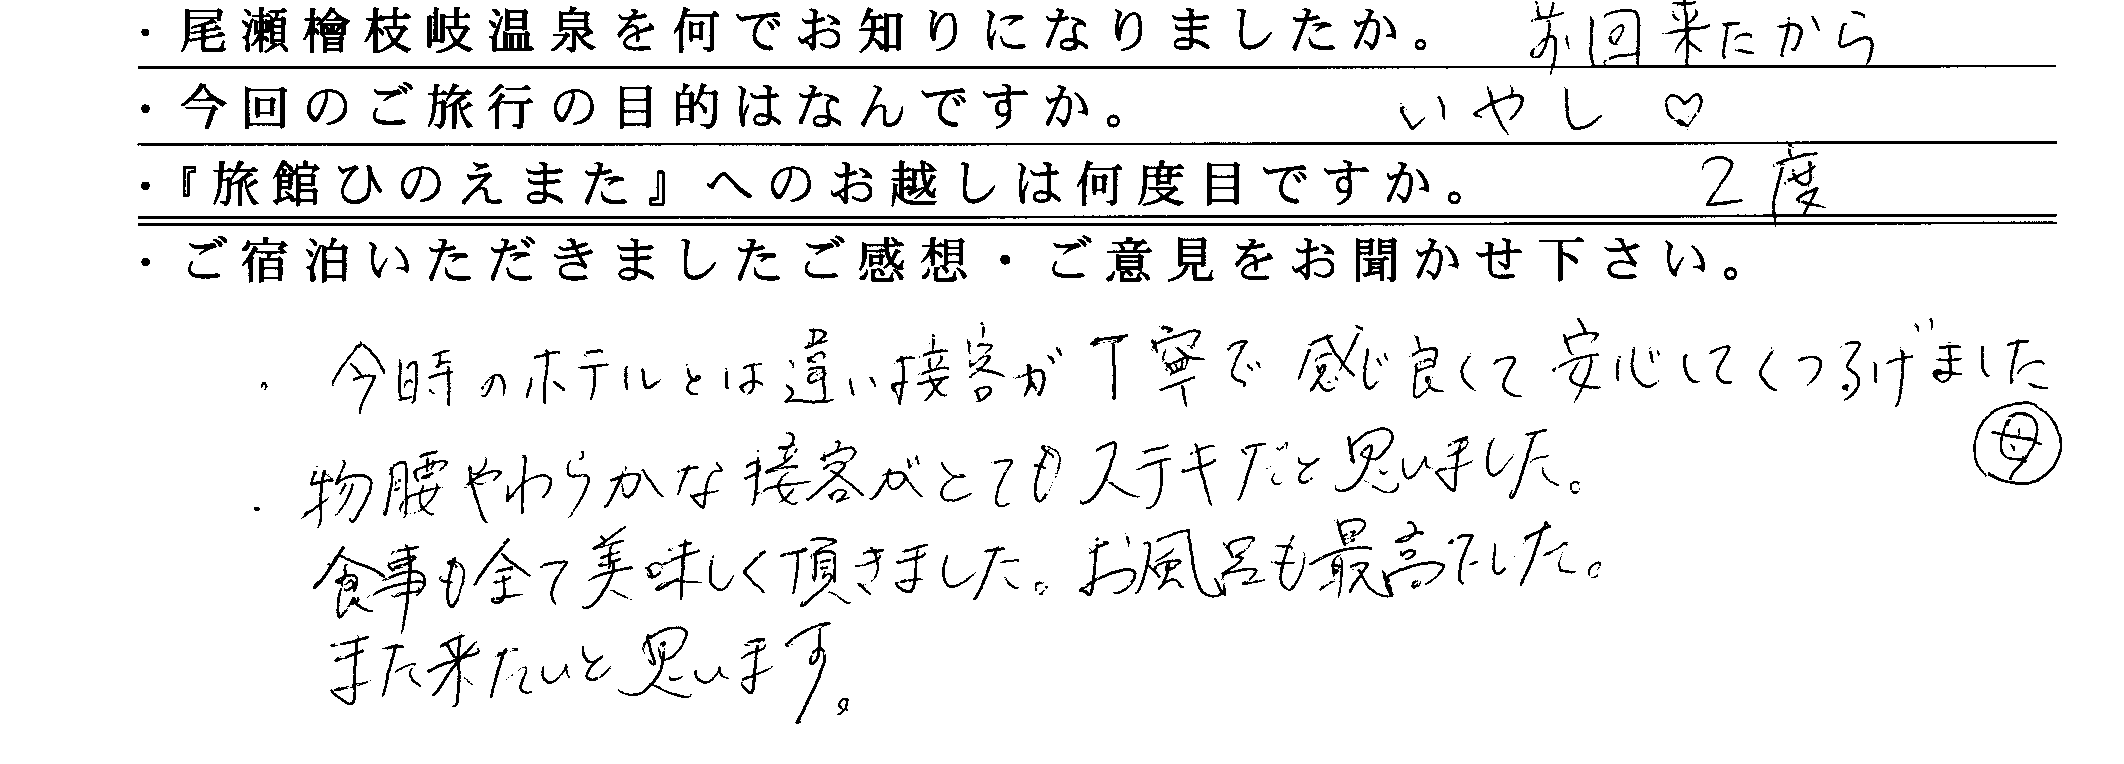 ・尾瀬檜枝岐温泉を何でお知りになりましたか。 前回来たから
・今回のご旅行の目的はなんですか。 いやし♡
・『旅館ひのえまた』へのお越しは何度目ですか。 2度
・ご宿泊いただきましたご感想・ご意見をお聞かせ下さい。
・今時のホテルとは違い接客が丁寧で感じ良くて安心してくつろげました
母
・物腰やわらかな接客がとてもステキだと思いました。
食事も全て美味しく頂きました。お風呂も最高でした。
また来たいと思います。